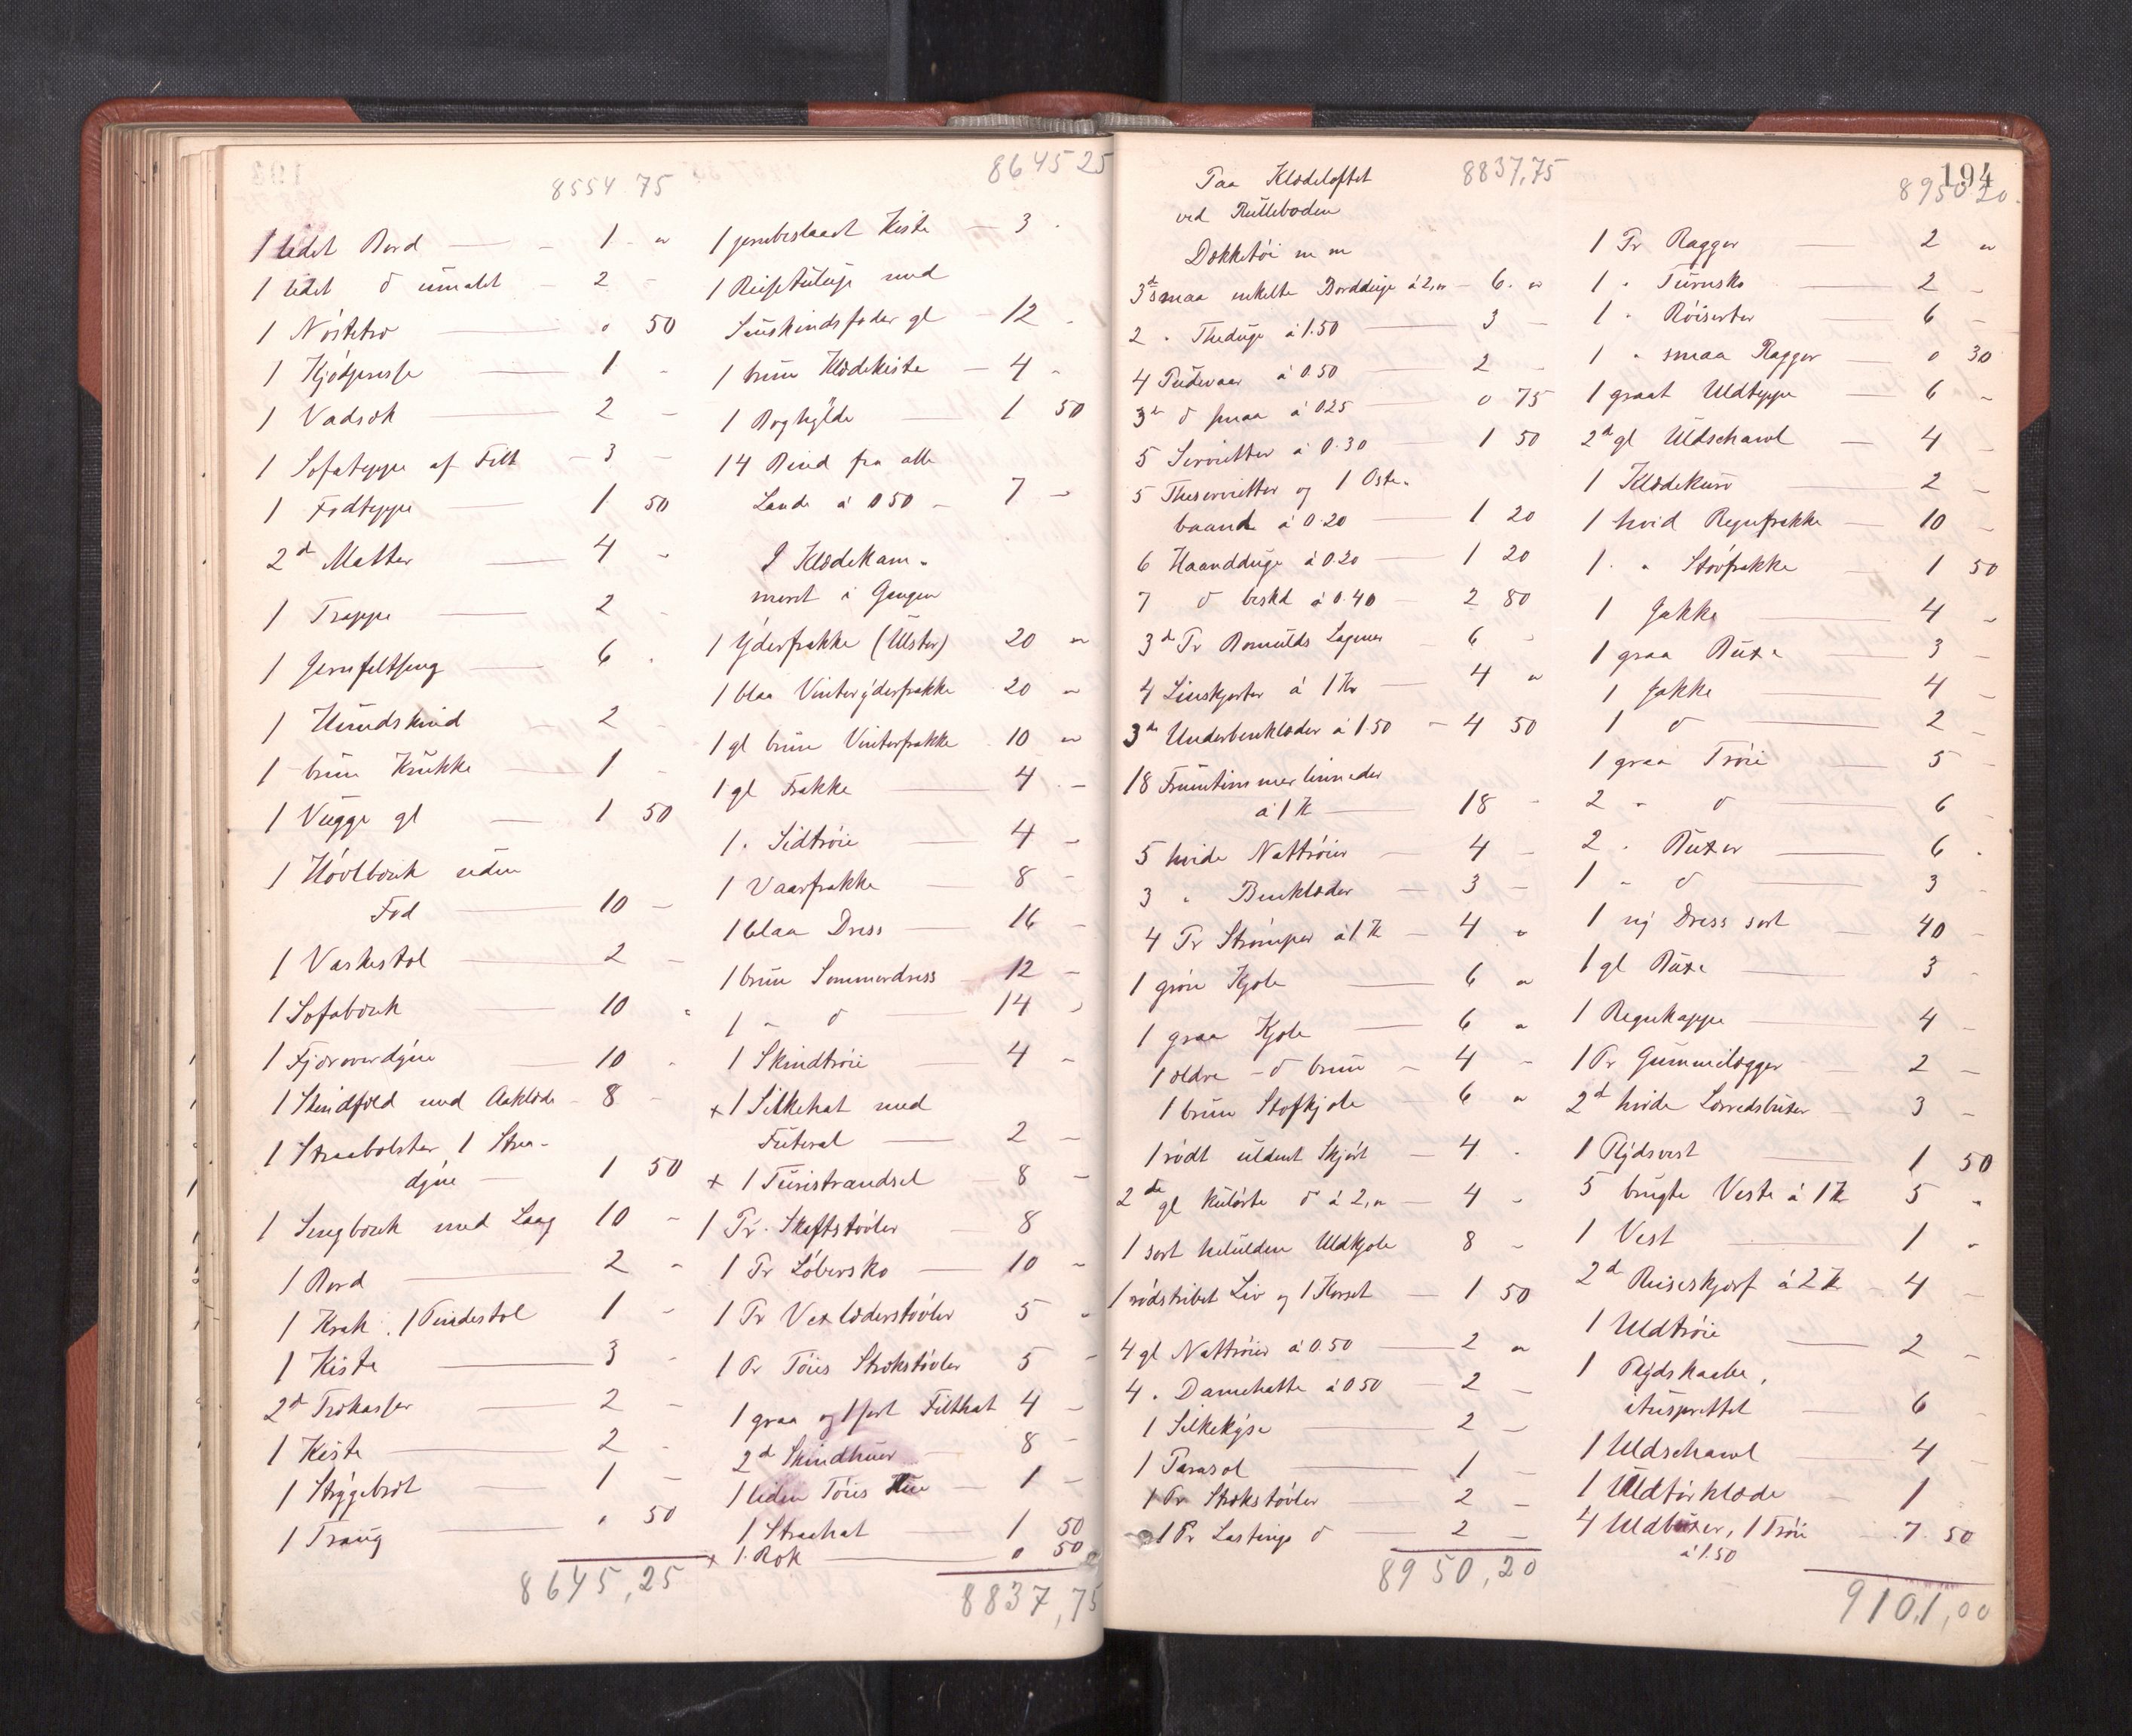 8554 75
1 lidet Bord — 1 "
1 lidet d umalet — 2 -
1 Nöstetræ — " 50
1 Kjödpresse — 1 -
1 Vadsæk — 2 -
1 Sofateppe af Filt — 3 -
1 Fodteppe — 1 50
2de Matter — 4 -
1 Trappe — 2 -
1 Jernfeltseng — 6 -
1 Hundskind — 2 -
1 brun Krukke — 1 -
1 Vugge gl — 1 50
1 Hövlbænk uden
Fod — 10 -
1 Vaskestol — 2 -
1 Sofabænk — 10 "
1 Fjæroverdyne — 10 -
1 Skindfeld med Aaklæde - 8 -
1 Straabolster, 1 Straa-
dyne — 1 50
1 Sengbænk med Laag 10 -
1 Bord — 2 -
1 Krak, 1 Pindestol 1 -
1 Kiste — 3 -
2de Trækasser — 2 -
1 Kiste — 2 -
1 Strygebræt — 1 -
1 Traug — " 50
8645,25
8645 25
1 jernbeslaaet Kiste — 3 -
1 Reisetuluge med
Saueskindsfoder gl — 12 -
1 brun Klædekiste — 4 -
1 Boghylde — 1 50
14 Bind fra alle
Lande à 0 50 — 7 -
I Klædekam-
meret i Gangen
1 Yderfrakke (Ulster) 20 "
1 blaa Vinteryderfrakke 20 "
1 gl brun Vinterfrakke 10 "
1 gl Frakke — 4 -
1 " Sidtröie — 4 -
1 Vaarfrakke — 8 -
1 blaa Dress — 16 -
1 brun Sommerdress — 12 -
1 " d — 14 -
1 Skindtröie — 4 -
x 1 Silkehat med
Futeral — 2 -
x 1 Turistrandsel — 8 -
1 Pr. Skaftstövler — 8
1 Pr Löbersko — 10 -
1 Pr Vexlæderstövler 5 -
1 Pr Töies Strækstövler 5 -
1 graa og 1 sort Filthat 4 -
2de Skindhuer — 8 -
1 liden Töies Hue — 1 -
1 Straahat 1 50
x 1 Rok — 0 50
8837,75
Paa Klædeloftet
ved Rulleboden
8837,75
Dækketöi m m
3de smaa enkelte Bordduge à 2,00 - 6. "
2 " Theduge à 1.50 — 3 -
4 Pudevaar à 0.50 — 2 -
3de d smaa à 025 — 0 75
5 Servietter à 0.30 — 1 50
5 Theservietter og 1 Oste-
baand à 0.20 — 1 20
6 Haandduge à 0.20 — 1 20
7 d beskd à 0.40 — 2 80
3de Pr Bomulds Lagener — 6 -
4 Linskjorter à 1 Kr — 4 "
3de Underbenklæder à 1.50 - 4 50
18 Fruentimmerlinneder
à 1 Kr — 18 -
5 hvide Nattröier — 4 -
3 " Benklæder — 3 -
4 Pr Strömper à 1 Kr — 4 "
1 grön Kjole — 6 "
1 graa Kjole — 6 "
1 ældre - d brun — 4 -
1 brun Stofkjole — 6 "
1 rödt uldent Skjört — 4 -
2de gl kulörte d à 2,00 — 4 -
1 sort helulden Uldkjole 8 -
1 rödstribet Liv og 1 Korset — 1 50
4 gl Nattröier à 0.50 — 2 "
4 " Damehatte à 0 50 — 2 -
1 Silkekyse — 2 -
1 Parasol — 1 -
1 Pr Strækstövler — 2 -
1 Pr Lastings d — 2 -
8950,20
194
8950 20
1 Pr Ragger — 2 "
1 " Turnsko — 2 -
1 " Röiserter — 6 -
1 " smaa Ragger — 0 30
1 graat Uldteppe — 6 -
2de gl Uldschawl — 4 -
1 Klædekurv — 2 -
1 hvid Regnfrakke — 10 -
1 " Stövfrakke — 1 50
1 Jakke — 4 -
1 graa Buxe — 3 -
1 Jakke — 4 -
1 d — 2 -
1 graa Tröie — 5 -
2 " d — 6 -
2 " Buxer — 6 -
1 " d — 3 -
1 ny Dress sort — 40 -
1 gl Buxe — 3 -
1 Regnkappe — 4 -
1 Pr Gummilægger — 2 -
2de hvide Lærredsbuxer — 3 -
1 Plydsvest — 1 50
5 brugte Veste à 1 Kr 5 "
1 Vest — 1 "
2de Reiseskjærf à 2 Kr — 4 -
1 Uldtröie — 2 -
1 Plydskaabe,
itusprættet — 6 -
1 Uldschawl — 4 -
1 Uldtörklæde — 1 -
4 Uldbuxer, 1 Tröie — 7. 50
à 1.50
9101,00